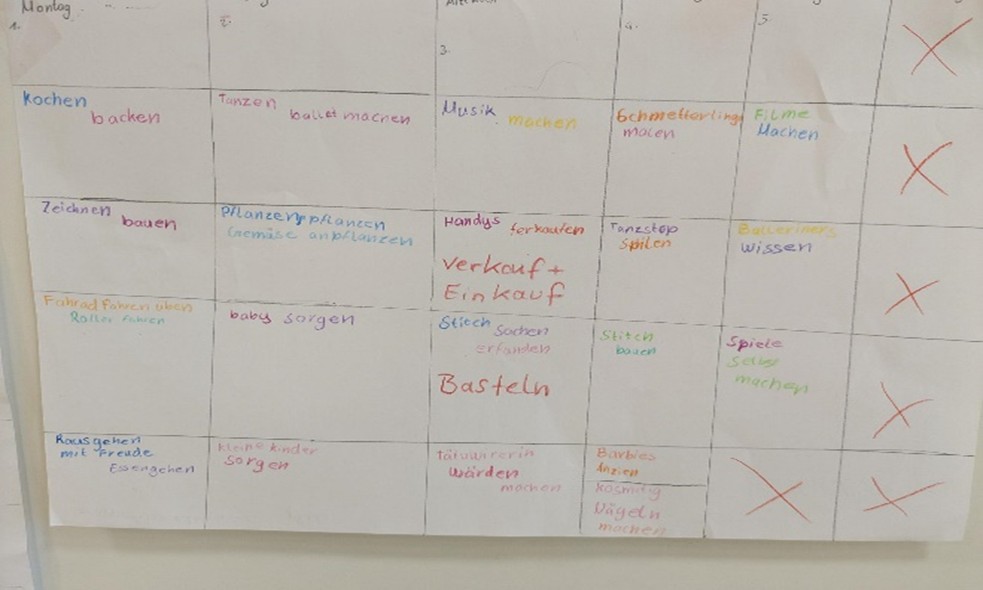 Montag
1.
2.
3.
4.
5.
Kochen
backen
Tanzen
ballet machen
Musik
machen
Schmetterlinge
malen
Filme
Machen
Zeichnen
bauen
Pflanzen pflanzen
Gemüse anpflanzen
Handys
ferkaufen
Verkauf +
Einkauf
Tanzstop
Spilen
Balleriners
wissen
Fahrad fahren üben
Roller fahren
baby sorgen
Stitch
Sachen
erfanden
Basteln
Stitch
bauen
Spiele
Selbst
machen
Rausgehen
mit Freude
Essengehen
kleine kinder
sorgen
wärden
machen
Barbies
Anzien
Nägeln
machen